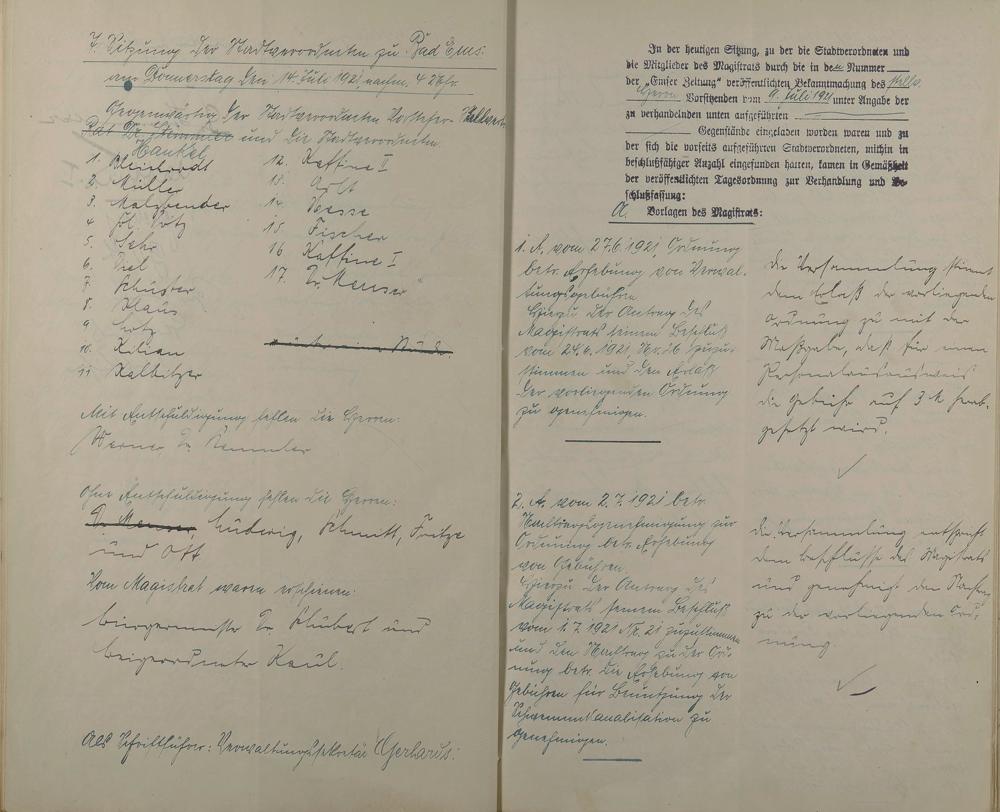 7. Sitzung der Stadtverordneten zu Bad Ems.
am Donnerstag den 14. Juli 1921, nachm. 4 Uhr.
Gegenwärtig der Stadtverordneten Vorsteher-Stellvertr.
und die Stadtverordneten
Hankel
1. Bleichrodt
2. Müller
3. Malzbender
4. Lotz
5. Sehr
6. Diel
7. Schuster
8. Klaus
9. Lotz
10. Kilian
11. Kalbitzer
12. Kaffine I
13.
14. Hesse
15. Fischer
16 Kaffine I
17. Dr. Meuser
Mit Entschuldigung fehlen die Herren:
Werner Dr.
Ohne Entschuldigung fehlen die Herren:
Dr. Meuser, Ludwig, Schmitt, Fritze
und Ott
Vom Magistrat waren erschienen:
Bürgermeister Dr. Schubert und
Beigeordneter Kaul.
Als Schriftführer: Verwaltungssekretär Gerharus.
In der heutigen Sitzung, zu der die Stadtverordneten und
die Mitglieder des Magistrats durch die in der Nummer
der „Emser Zeitung" veröffentlichten Bekanntmachung des stellv.
Herrn Vorsitzenden vom 9. Juli 1921 unter Angabe der
zu verhandelnden unten aufgeführten
Gegenstände eingeladen worden waren und zu
der sich die vorseits aufgeführten Stadtverordneten, mithin in
beschlußfähiger Anzahl eingefunden hatten, kamen in Gemäßheit
der veröffentlichten Tagesordnung zur Verhandlung und Be-
schlußfassung:
A. Vorlagen des Magistrats:
1. A. vom 27.6.1921, Ordnung
betr. Erhebung von Verwal-
tungsgebühren
Hierzu der Antrag des
Magistrats seinem Beschluß
vom 24.6.1921, No. 26 zuzu-
stimmen und den Erlaß
der vorliegenden Ordnung
zu genehmigen.
Die Versammlung stimmt
dem Erlaß der vorliegenden
Ordnung zu mit der
Maßgabe, daß für einen
Personalausweis
die Gebühr auf 3 M herab-
gesetzt wird.
2. A. vom 2.7.1921 betr.
Nachtragsgenehmigung zur
Ordnung betr. Erhebung
von Gebühren.
Hierzu der Antrag des
Magistrats seinem Beschluß
vom 1.7.1921 Nr. 21 zuzustimmen
und den Nachtrag zu der Ord-
nung betr. die Erhebung von
Gebühren für Benutzung der
Schwemmkanalisation zu
genehmigen.
Die Versammlung entspricht
dem Beschlusse des Magistrats
und genehmigt den Nachtrag
zu der vorliegenden Ord-
nung.